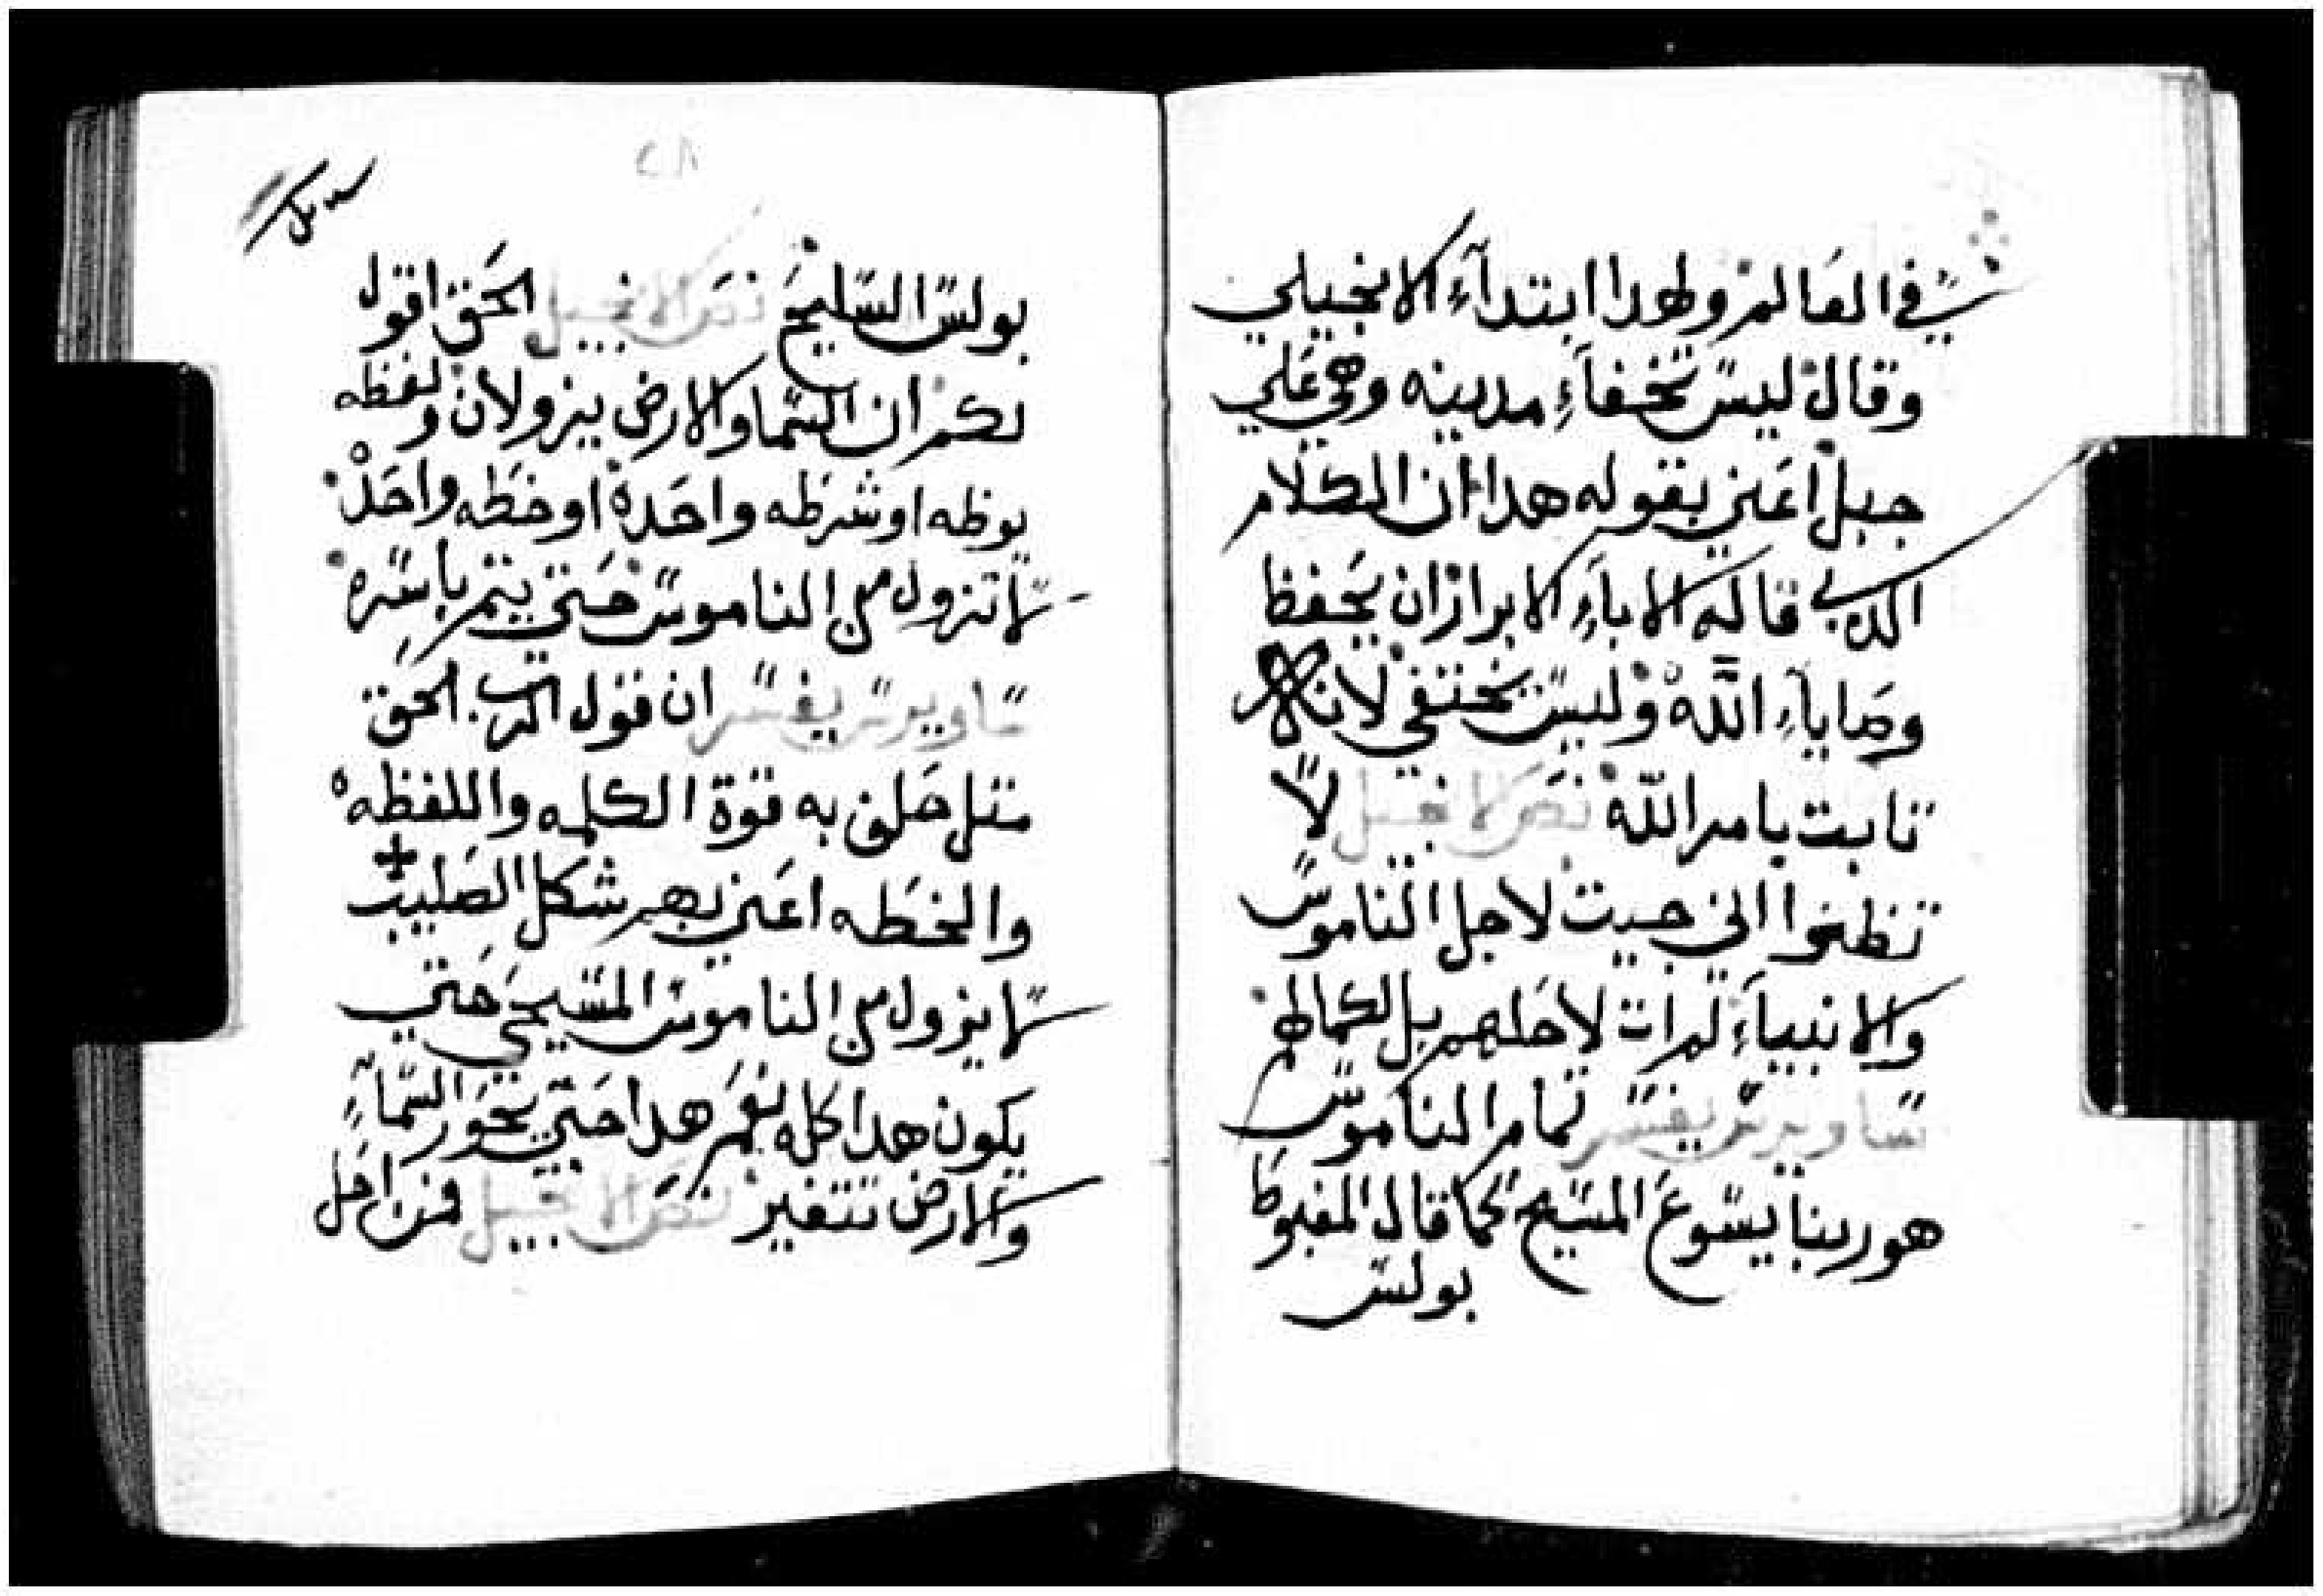 في العالم ولهدا ابتدآء الانجيلي
وقال ليس تخفاء مدينه وهي علي
جبل اعني بقوله هدا ان الكلام
الدي قاله الاباء الابرار ان يحفظ
وصاياء الله وليس يختفي لانه
تابت بامر الله نص الانجيل لا
تظنوا اني جيت لاجل الناموس
والانبياء لم ات لاحلهم بل لكمالهم
ساويرس يفسر تمام الناموس
هو ربنا يسوع المسيح كما قال المغبوط
بولس
٥٨
بولس السليح نص الانجيل الحق اقول
لكم ان السما والارض يزولان ولفظه
يوظه او شرطه واحدة او خطه واحده
لا تزول من الناموس حتي يتم باسره
ساويرس يفسر ان قول الرب الحق
متل حلف به قوة الكلمه واللفظه
والخطه اعني بهم شكل الصليب
لا يزول من الناموس المسيحي حتي
يكون هدا كله نعم هدا حتي يحور السماء
والارض تتغير نص الانجيل فمن احل